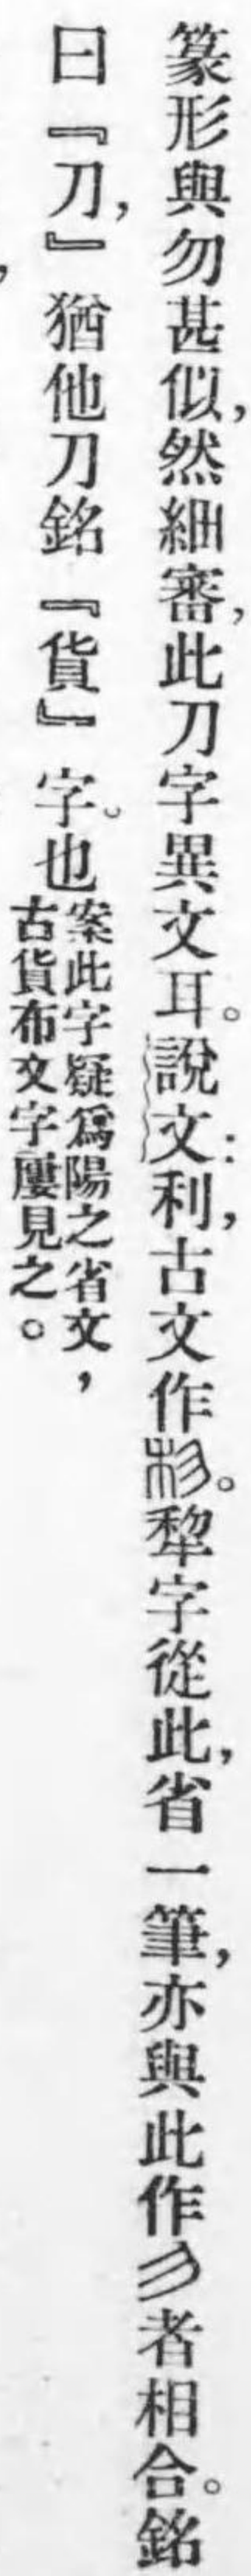 篆形與勿甚似，然細審，此刀字異文耳。說文：利，古文作𥝢。犂字從此，省一筆，亦與此作勿者相合。銘
曰『刀，』猶他刀銘『貨』字。也
案此字疑爲陽之省文，
古貨布文字屢見之。